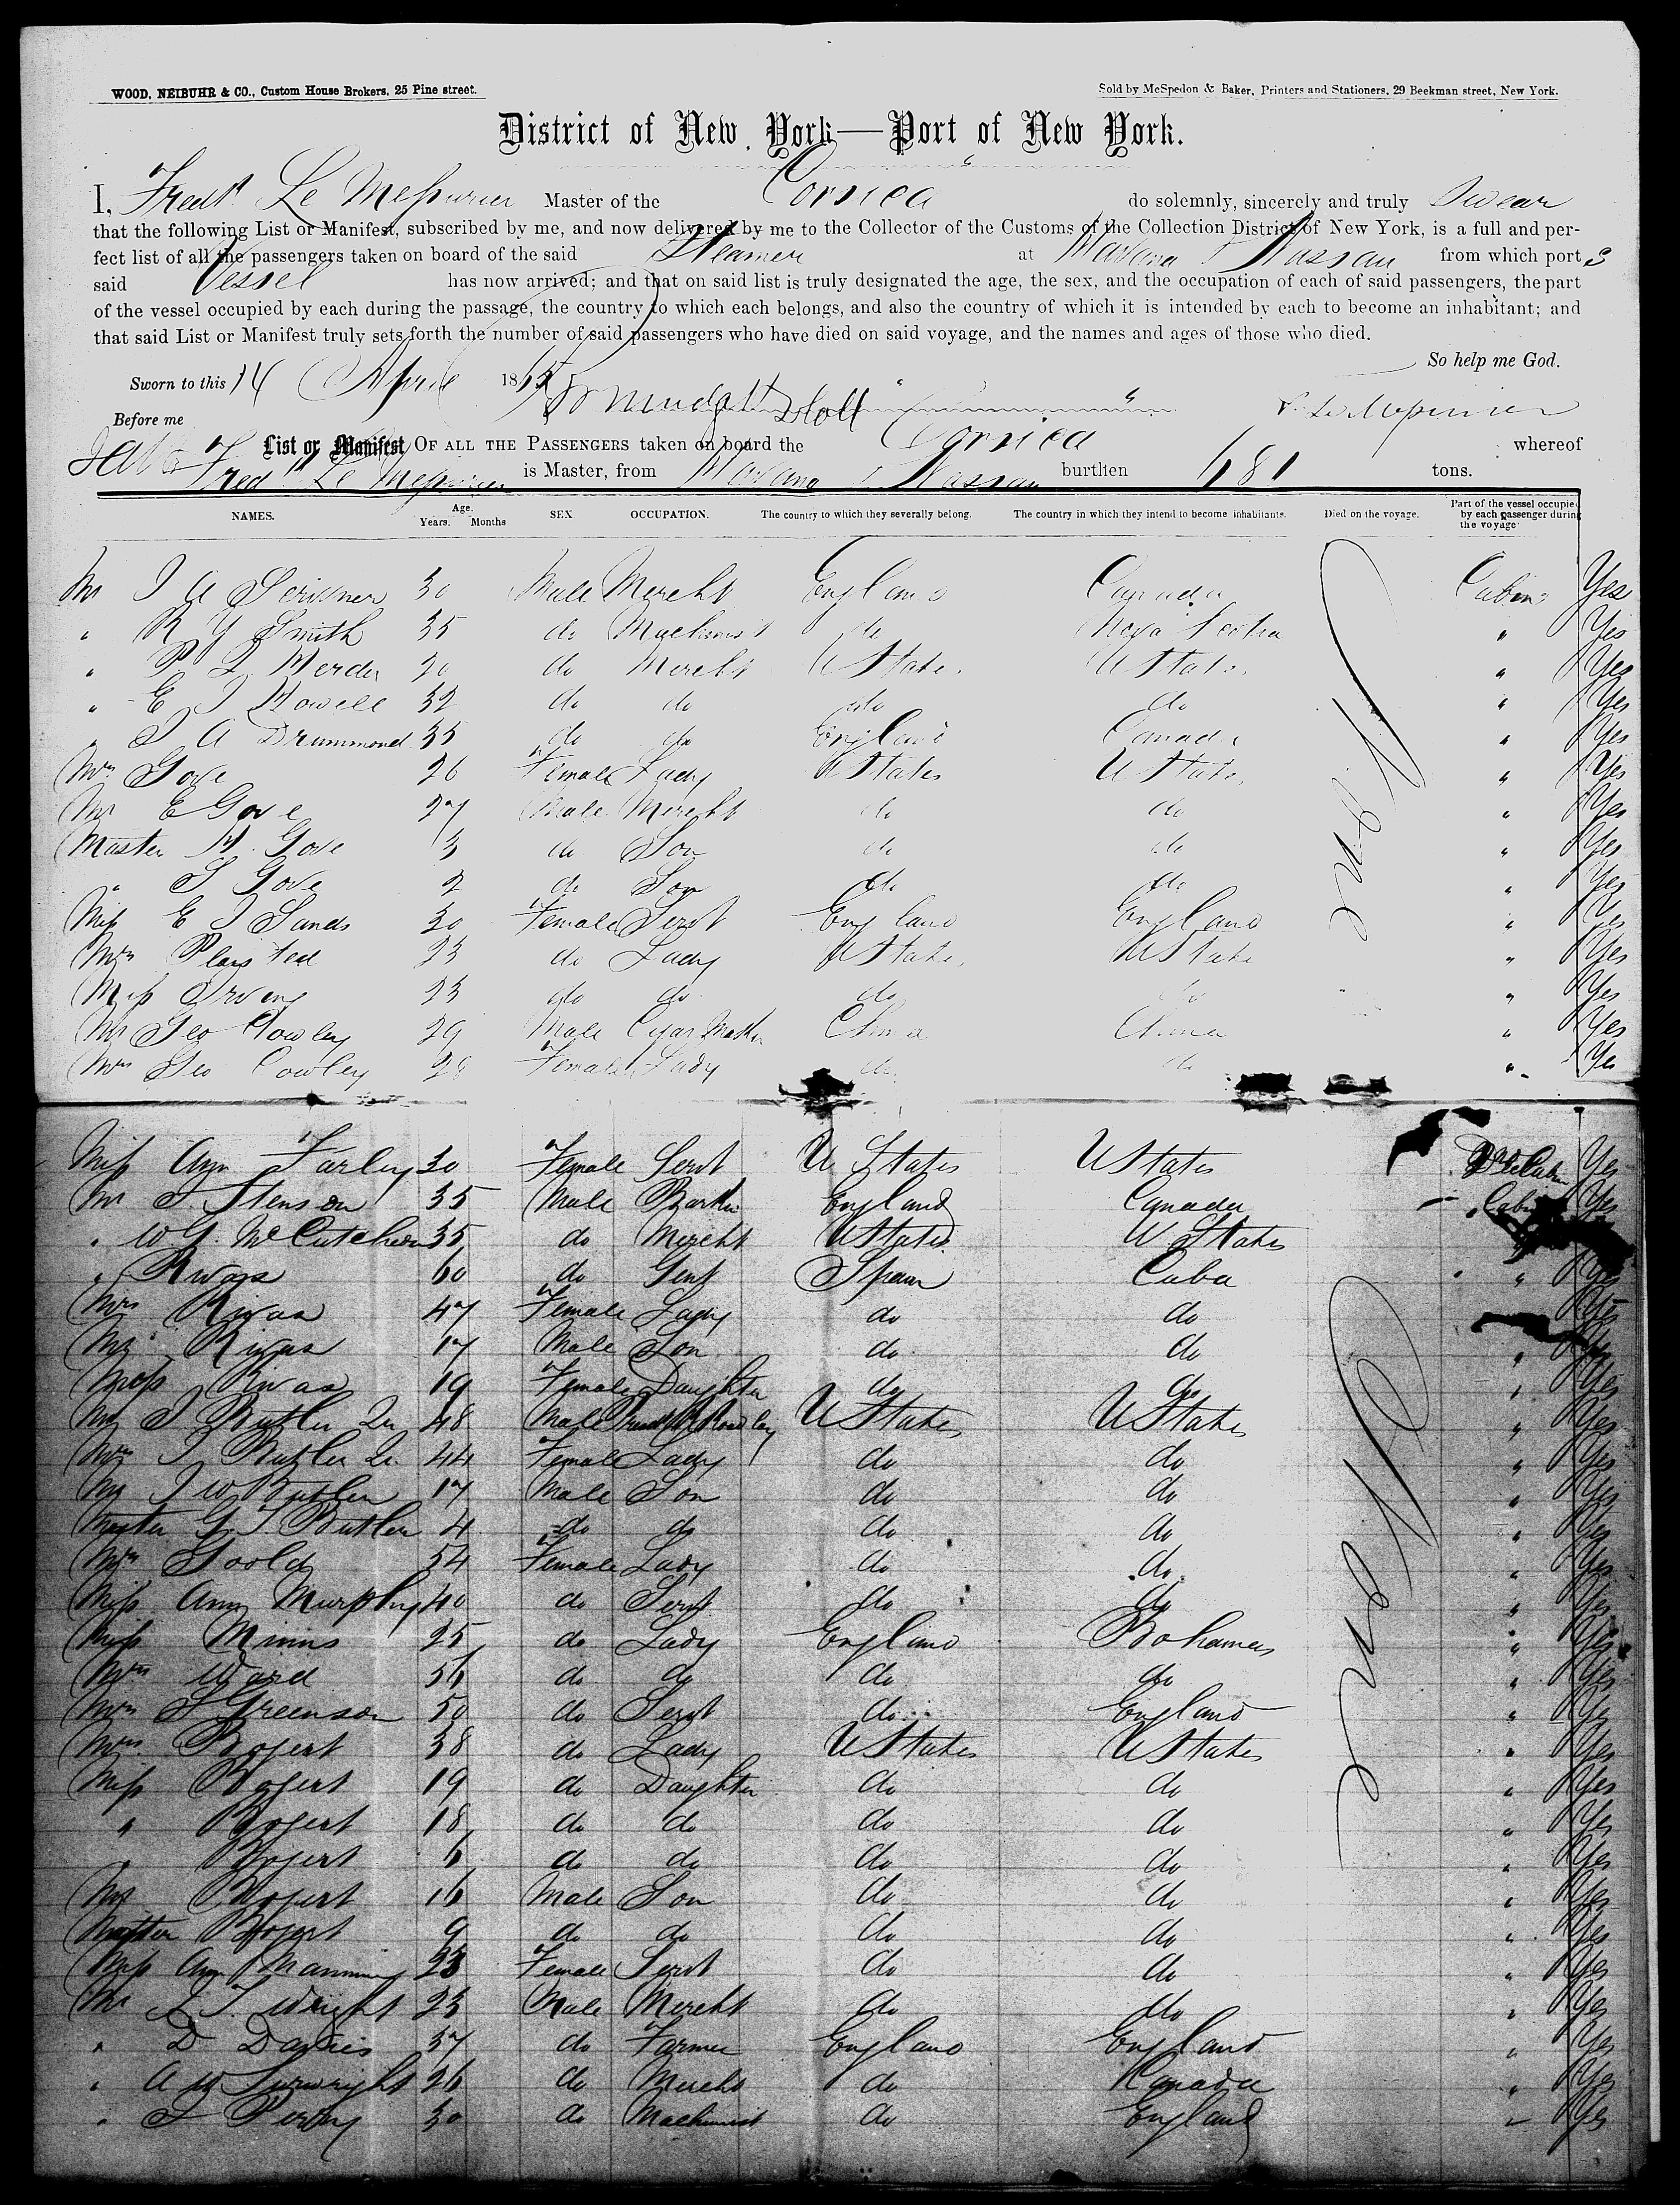 WOOD, NEIBUHR & CO., Custom House Brokers, 25 Pine street.
Sold by McSpedon & Baker, Printers and Stationers, 29 Beekman street, New York.
District of New York—Port of New York.
I, Fredk Le Mesurier Master of the Corsica do solemnly, sincerely and truly Swear
that the following List or Manifest, subscribed by me, and now delivered by me to the Collector of the Customs of the Collection District of New York, is a full and per-
fect list of all the passengers taken on board of the said Steamer at Havana & Nassau from which port s
said Vessel has now arrived; and that on said list is truly designated the age, the sex, and the occupation of each of said passengers, the part
of the vessel occupied by each during the passage, the country to which each belongs, and also the country of which it is intended by each to become an inhabitant; and
that said List or Manifest truly sets forth the number of said passengers who have died on said voyage, and the names and ages of those who died.
So help me God.
Sworn to this 14 April 1865
F. Le Mesurier
Before me
List or Manifest OF ALL THE PASSENGERS taken on board the Corsica whereof
Fredk Le Mesurier is Master, from Havana & Nassau burthen 681 tons.
NAMES. Age. Years. Months SEX OCCUPATION. The country to which they severally belong. The country in which they intend to become inhabitants. Died on the voyage. Part of the vessel occupied by each passenger during the voyage
Mr J A Scrivner 30 Male Mercht England Canada Cabin Yes
" R Y Smith 35 do Machinist do Nova Scotia " Yes
" P L Mercder 20 do Mercht U States U States " Yes
" E J Howell 32 do do do do " Yes
" J A Drummond 35 do do England Canada " Yes
Mrs Gove 26 Female Lady U States U States " Yes
Mr E Gove 27 Male Mercht do do " Yes
Master H. Gove 3 do Son do do " Yes
" S Gove 2 do Son do do " Yes
Miss E J Sands 30 Female Servt England England " Yes
Mrs Plaisted 23 do Lady U States U States " Yes
Miss Irving 23 do do do do " Yes
Mr Geo Cowley 29 Male Cigar Maker China China " Yes
Mrs Geo Cowley 28 Female Lady do do " Yes
Miss Ann Farley 30 Female Servt U States U States Yes
Mr S. Stenson 35 Male England Canada Cabin Yes
" W G. McCutcheon 35 do Mercht U States U States " Yes
" Rivas 60 do Gent Spain Cuba " Yes
Mrs Rivas 47 Female Lady do do Yes
Mr Rivas 17 Male Son do do " Yes
Miss Rivas 19 Female Daughter do do " Yes
Mr J Butler 48 Male U States U States " Yes
Mrs J Butler 44 Female Lady do do " Yes
Mr J W Butler 17 Male Son do do " Yes
Master G S Butler 4 do do do do " Yes
Mrs Goold 54 Female Lady do do " Yes
Miss Ann Murphy 40 do Servt do do " Yes
Miss Minns 25 do Lady England Bahamas " Yes
Mrs Ward 56 do do do do " Yes
Mrs S Greenson 50 do Servt do England " Yes
Mrs Bogert 38 do Lady U States U States " Yes
Miss Bogert 19 do Daughter do do " Yes
" Bogert 18 do do do do " Yes
" Bogert 6 do do do do " Yes
Mr Bogert 16 Male Son do do " Yes
Master Bogert 9 do do do do " Yes
Miss Ann Manning 23 Female Servt do do " Yes
Mr J. T. Wright 23 Male Mercht do do " Yes
" D Davies 37 do Farmer England England " Yes
" A W 26 do Mercht do Canada " Yes
" J Perry 30 do Machinist do England " Yes